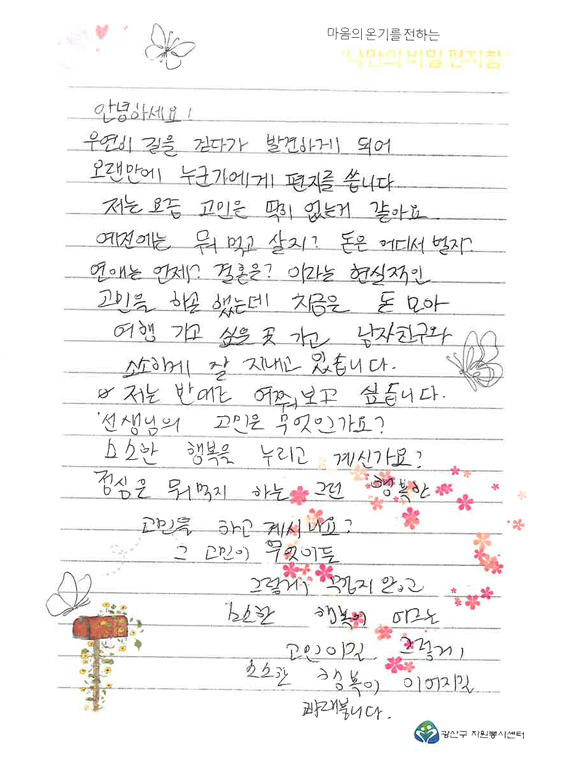 마음의 온기를 전하는
"나만의 비밀 편지함"
안녕하세요!
우연히 길을 걷다가 발견하게 되어
오랜만에 누군가에게 편지를 씁니다
저는 요즘 고민은 딱히 없는거 같아요
예전에는 뭐 먹고 살지? 돈은 어디서 벌지?
연애는 언제? 결혼은? 이라는 현실적인
고민을 하곤 했는데 지금은 돈 모아
여행 가고 싶은 곳 가고 남자친구와
소소하게 잘 지내고 있습니다.
저는 반대로 여쭤보고 싶습니다.
선생님의 고민은 무엇인가요?
소소한 행복을 누리고 계신가요?
점심은 뭐먹지 하는 그런 행복한
고민을 하고 계시나요?
그 고민이 무엇이든
그렇게 않고
소소한 행복이
고민이길 그렇게
소소한 행복이 이어지길
바래봅니다.
광산구 자원봉사센터